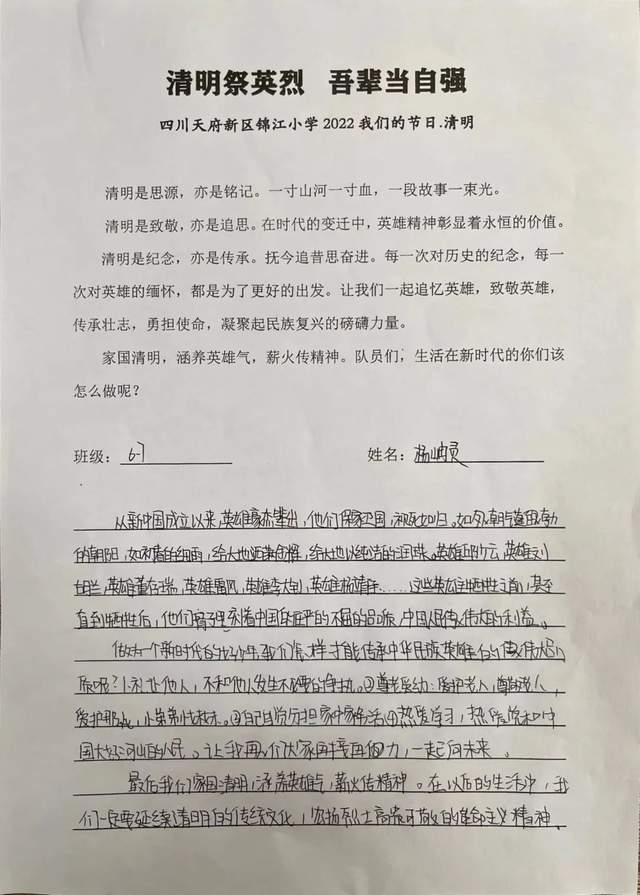 清明祭英烈 吾辈当自强
四川天府新区锦江小学2022我们的节日.清明
清明是思源，亦是铭记。一寸山河一寸血，一段故事一束光。
清明是致敬，亦是追思。在时代的变迁中，英雄精神彰显着永恒的价值。
清明是纪念，亦是传承。抚今追昔思奋进。每一次对历史的纪念，每一
次对英雄的缅怀，都是为了更好的出发。让我们一起追忆英雄，致敬英雄，
传承壮志，勇担使命，凝聚起民族复兴的磅礴力量。
家国清明，涵养英雄气，薪火传精神。队员们，生活在新时代的你们该
怎么做呢？
班级：6-7 姓名：杨
从新中国成立以来，英雄豪杰辈出，他们保家卫国，视死如归。如
的朝阳，如的细雨，给大地，给大地以纯洁的。英雄邱少云，英雄刘
胡兰，英雄董存瑞，英雄雷风，英雄李大钊，英雄杨靖宇……这些英雄牺牲之前，甚至
直到牺牲后，他们着中国的不屈的，中国人民伟大的利益。
做为一个新时代的好少年我们怎样才能传承中华民族英雄的伟大
呢？他人，不和他人发生不必要的争执。②尊老爱幼：爱护老人，尊敬老人，
爱护，小弟弟小妹妹。③自己自觉分担家中家务活④热爱学习，热爱党和中
国大好河山的人民。让我们大家再接再力，一起向未来。
最后我们家国清明，涵养英雄气，薪火传精神。在以后的生活中，我
们一定要延续清明的传统文化，宏扬烈士高尚可敬的革命主义精神。